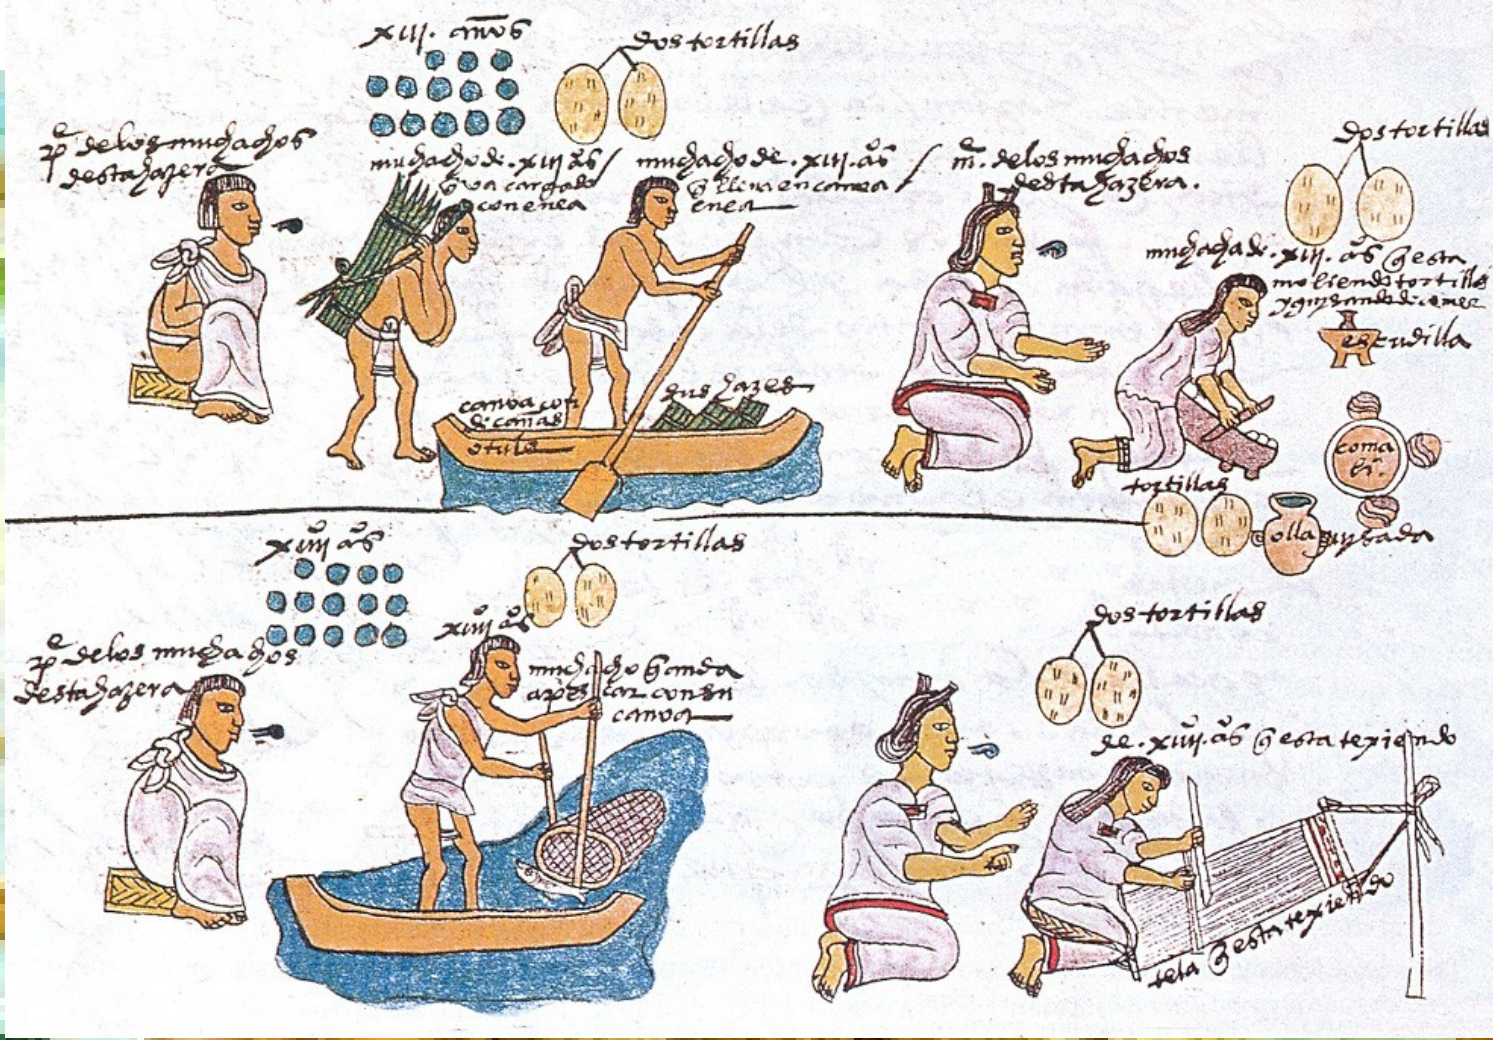 xiii. años
dos tortillas
pe de los muchachos
desta hazera
muchacho de .xiii. as /
q va cargado
con enea
muchacho de .xiii. as /
q lleva en canoa
enea
mе. de los muchachos
desta hazera.
dos tortillas
muchacha de .xiii. as q esta
moliendo tortillas
y guisando de comer
escudilla
canoa con
de cañas
o tule
sus hazes
coma
li.
tortillas
olla guisada
xiiii as
dos tortillas
pe de los muchachos
desta hazera
xiiii as
muchacho q anda
a pescar con su
canoa
dos tortillas
de .xiiii. as q esta texiendo
tela q esta texiendo